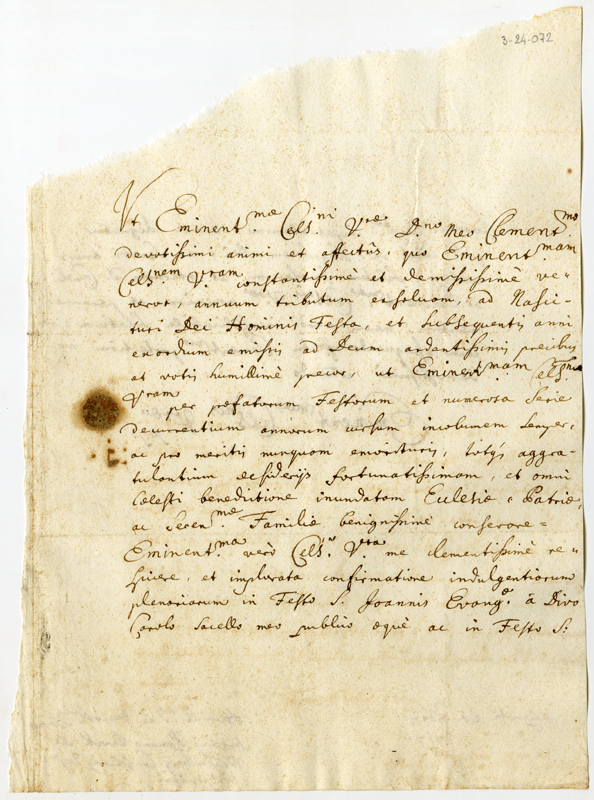 3-24-072
Ut Eminent.mae Cels.ini V.rae Dno meo Clement.mo
devotissimi animi et affectûs, quo Eminent.mam
Cels.nem V.ram constantissimè et demississimè ve-
neror, annuum tributum exsoluam, ad Nasci-
turi Dei Hominis Festa, et subsequentis anni
exordium emissis ad Deum ardentissimis precibus
et votis humillimè precor, ut Eminent.mam Cels.nem
Vram per praefatorum Festorum et numerosa serie
decurrentium annorum cursum incolumem semper,
ac pro meritis nunquam emorituris, totque aggra-
tulantium desiderijs fortunatissimam, et omni
Caelesti benedictione inundatam Ecclesiae, Patriae,
ac Seren.mae Familiae benignissimè conservare.
Eminent.ma verò Cels. V.ra me clementissimè re-
ficere, et implorata confirmatione indulgentiarum
plenariarum in Festo S. Joannis Evang. à Divo
Carolo sacello meo publico aequè ac in Festo S: